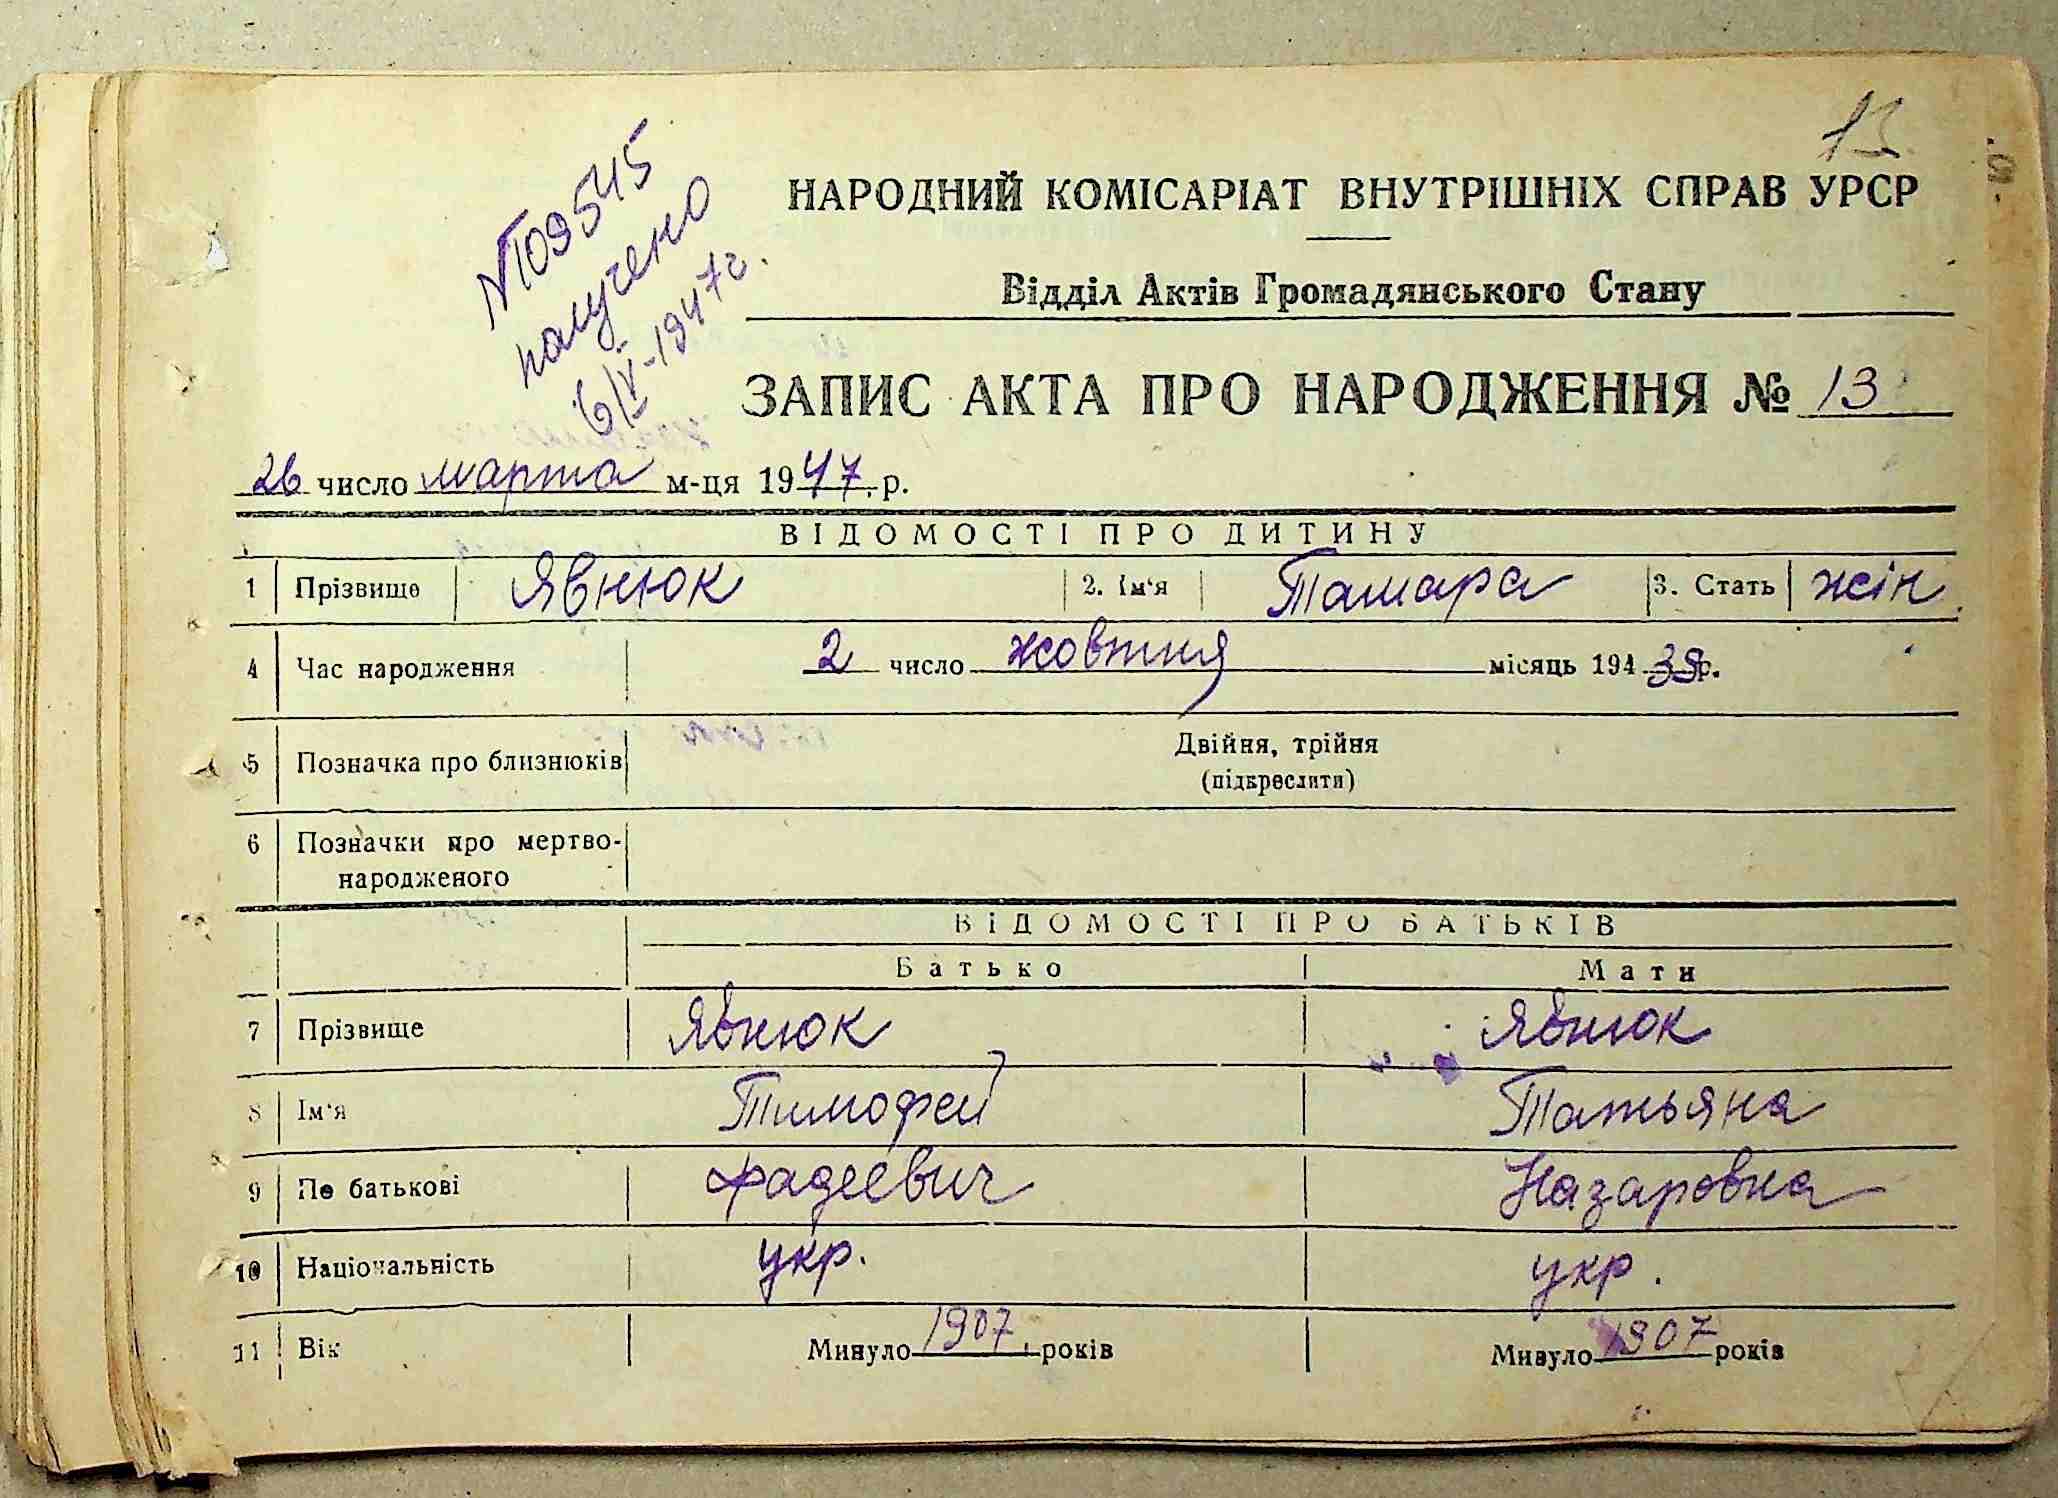 13
НАРОДНИЙ КОМІСАРІАТ ВНУТРІШНІХ СПРАВ УРСР
Відділ Актів Громадянського Стану
№109545
получено
6/V-1947г.
ЗАПИС АКТА ПРО НАРОДЖЕННЯ № 13
26 число марта м-ця 1947. р.
ВІДОМОСТІ ПРО ДИТИНУ
1 Прізвище Явнюк 2. Ім'я Тамара 3. Стать жін.
4 Час народження 2 число жовтня місяць 194 39 р.
5 Позначка про близнюків Двійня, трійня
(підкреслити)
6 Позначки про мертво-
народженого
ВІДОМОСТІ ПРО БАТЬКІВ
Батько Мати
7 Прізвище Явнюк Явнюк
8 Ім'я Тимофей Татьяна
9 По батькові Фадеевич Назаровна
10 Національність укр. укр.
11 Вік Минуло 1907 років Минуло 1907 років